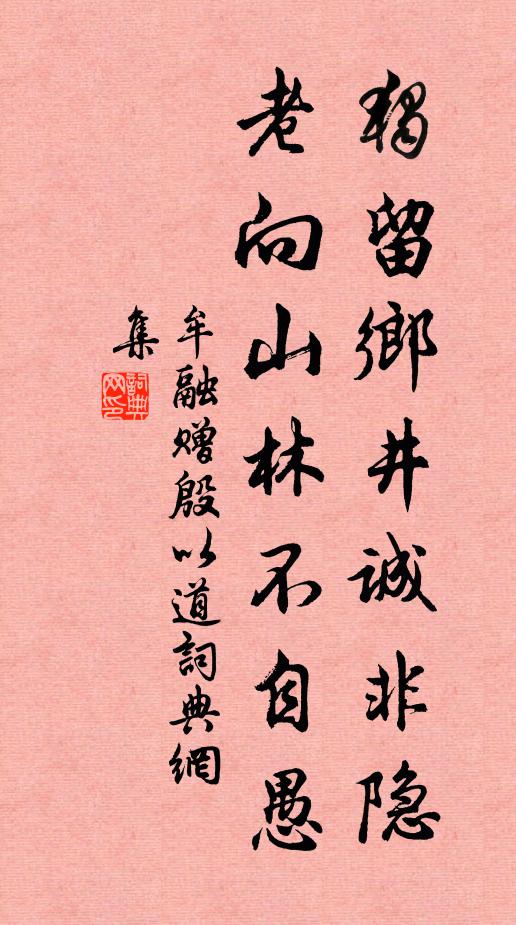 獨留鄉井誠非隐
老向山林不自愚
牟融赠殷以道詞典網
集
詞典
网印